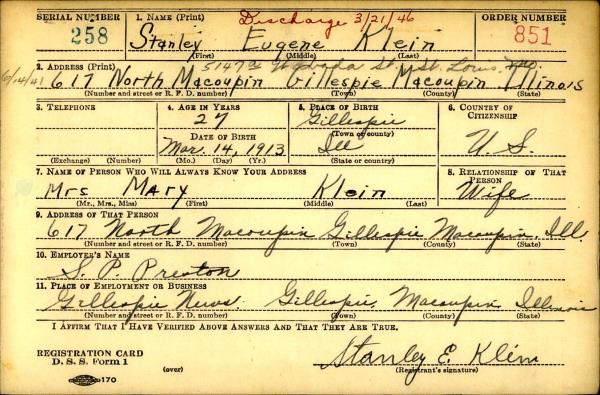 SERIAL NUMBER 1. NAME (Print) Discharge 3/21/46 ORDER NUMBER
258 Stanley Eugene Klein 851
(First) (Middle) (Last)
2. ADDRESS (Print) 5147a St. St. Louis, Mo.
6/14/41 617 North Macoupin Gillespie Macoupin Illinois
(Number and street or R. F. D. number) (Town) (County) (State)
3. TELEPHONE 4. AGE IN YEARS 5. PLACE OF BIRTH 6. COUNTRY OF CITIZENSHIP
27 Gillespie
DATE OF BIRTH (Town or county)
Mar. 14, 1913 Ill U. S.
(Exchange) (Number) (Mo.) (Day) (Yr.) (State or country)
7. NAME OF PERSON WHO WILL ALWAYS KNOW YOUR ADDRESS 8. RELATIONSHIP OF THAT PERSON
Mrs Mary Klein Wife
(Mr., Mrs., Miss) (First) (Middle) (Last)
9. ADDRESS OF THAT PERSON
617 North Macoupin Gillespie Macoupin, Ill.
(Number and street or R. F. D. number) (Town) (County) (State)
10. EMPLOYER'S NAME
S. P. Preston
11. PLACE OF EMPLOYMENT OR BUSINESS
Gillespie News. Gillespie, Macoupin Illinois
(Number and street or R. F. D. number) (Town) (County) (State)
I AFFIRM THAT I HAVE VERIFIED ABOVE ANSWERS AND THAT THEY ARE TRUE.
Stanley E. Klein
REGISTRATION CARD
D. S. S. Form 1 (over) (Registrant's signature)
170